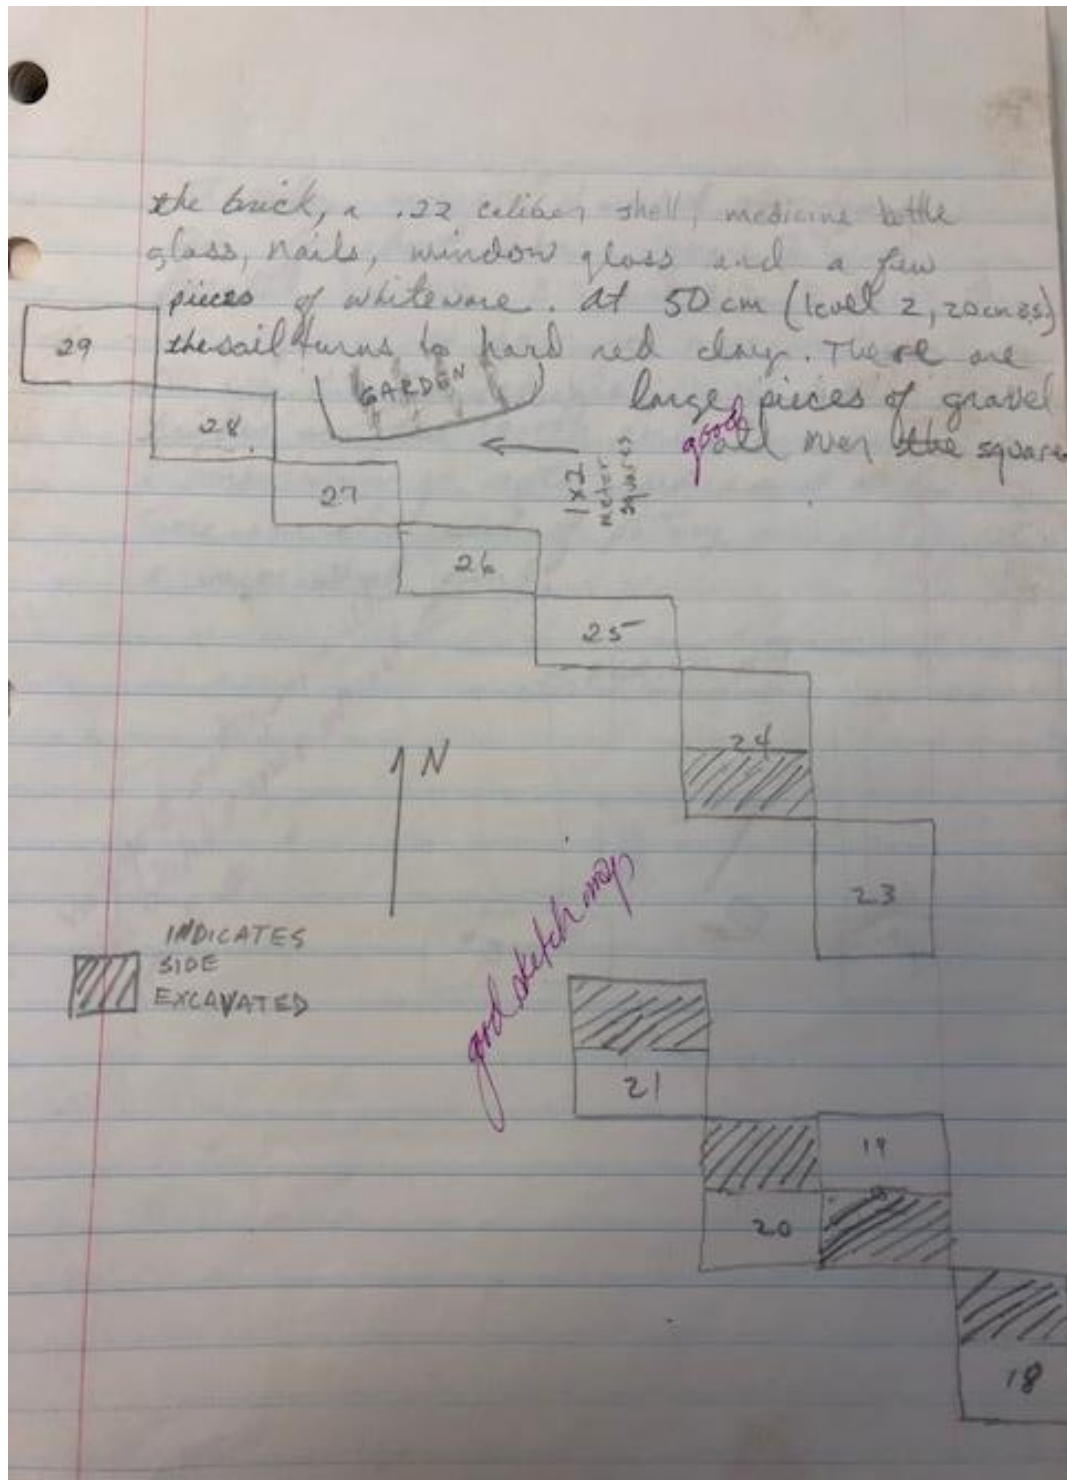 the brick, a .22 caliber shell, medicine bottle
glass, nails, window glass and a few
pieces of whiteware. At 50 cm (level 2, 20cm B.S.)
the soil turns to hard red clay. There are
large pieces of gravel
all over the square
good
29
GARDEN
28.
1x2
meter
squares
27
26
25
24
N
23
good sketch map
INDICATES
SIDE
EXCAVATED
21
19
20
18